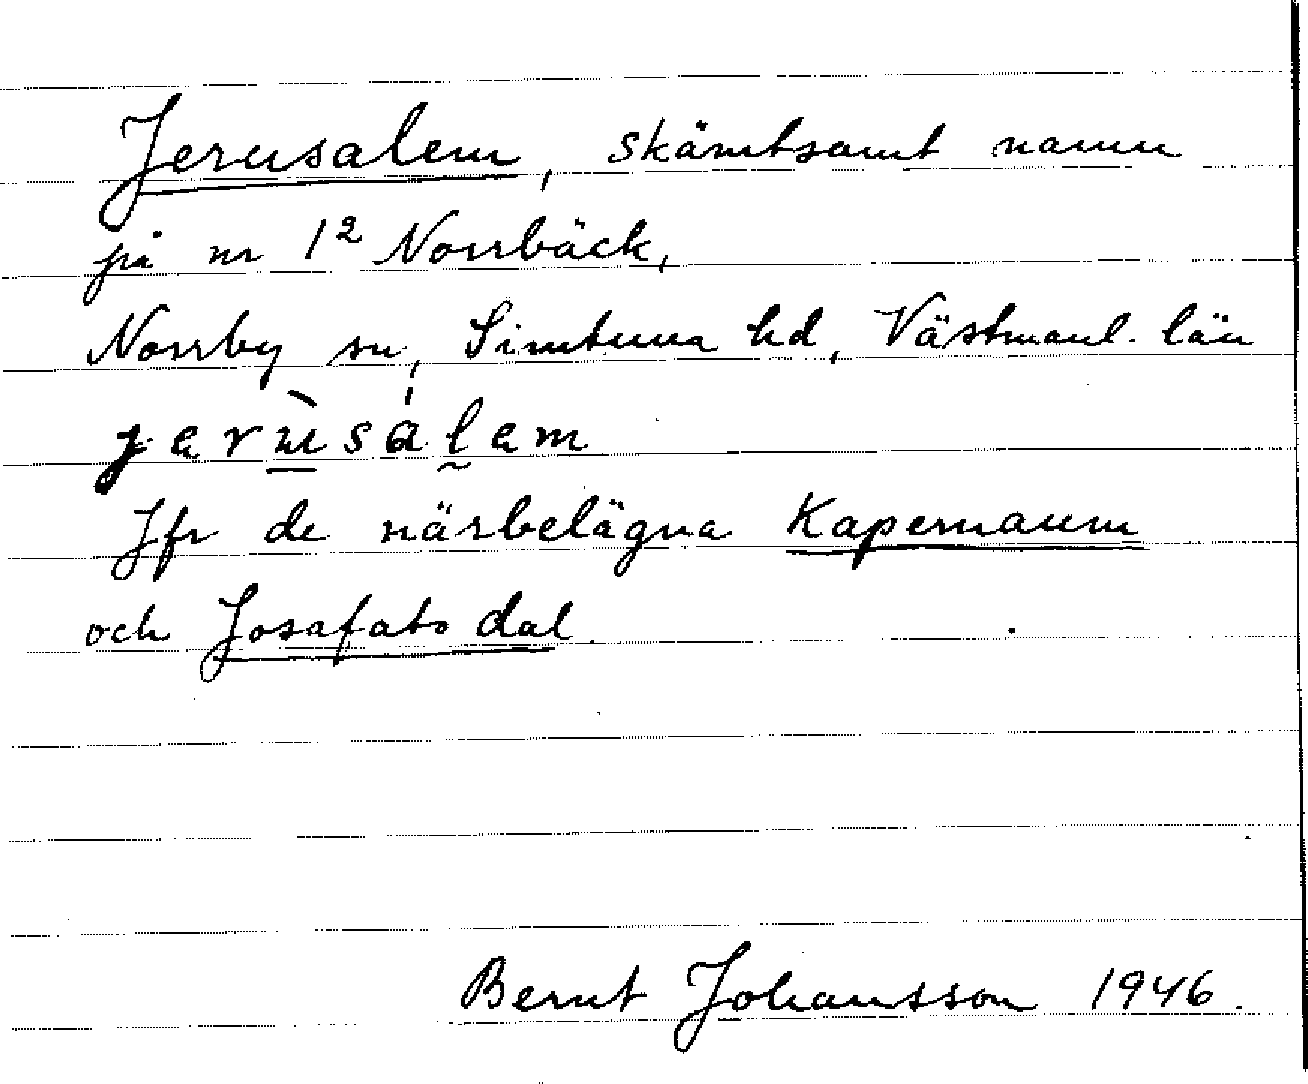 Jerusalem, skämtsamt namn
på nr 1² Norrbäck,
Norrby sn, Simtuna hd, Västmanl. län
jerùsálem
Jfr de närbelägna Kapernaum
och Josafats dal.
Bernt Johansson 1946.